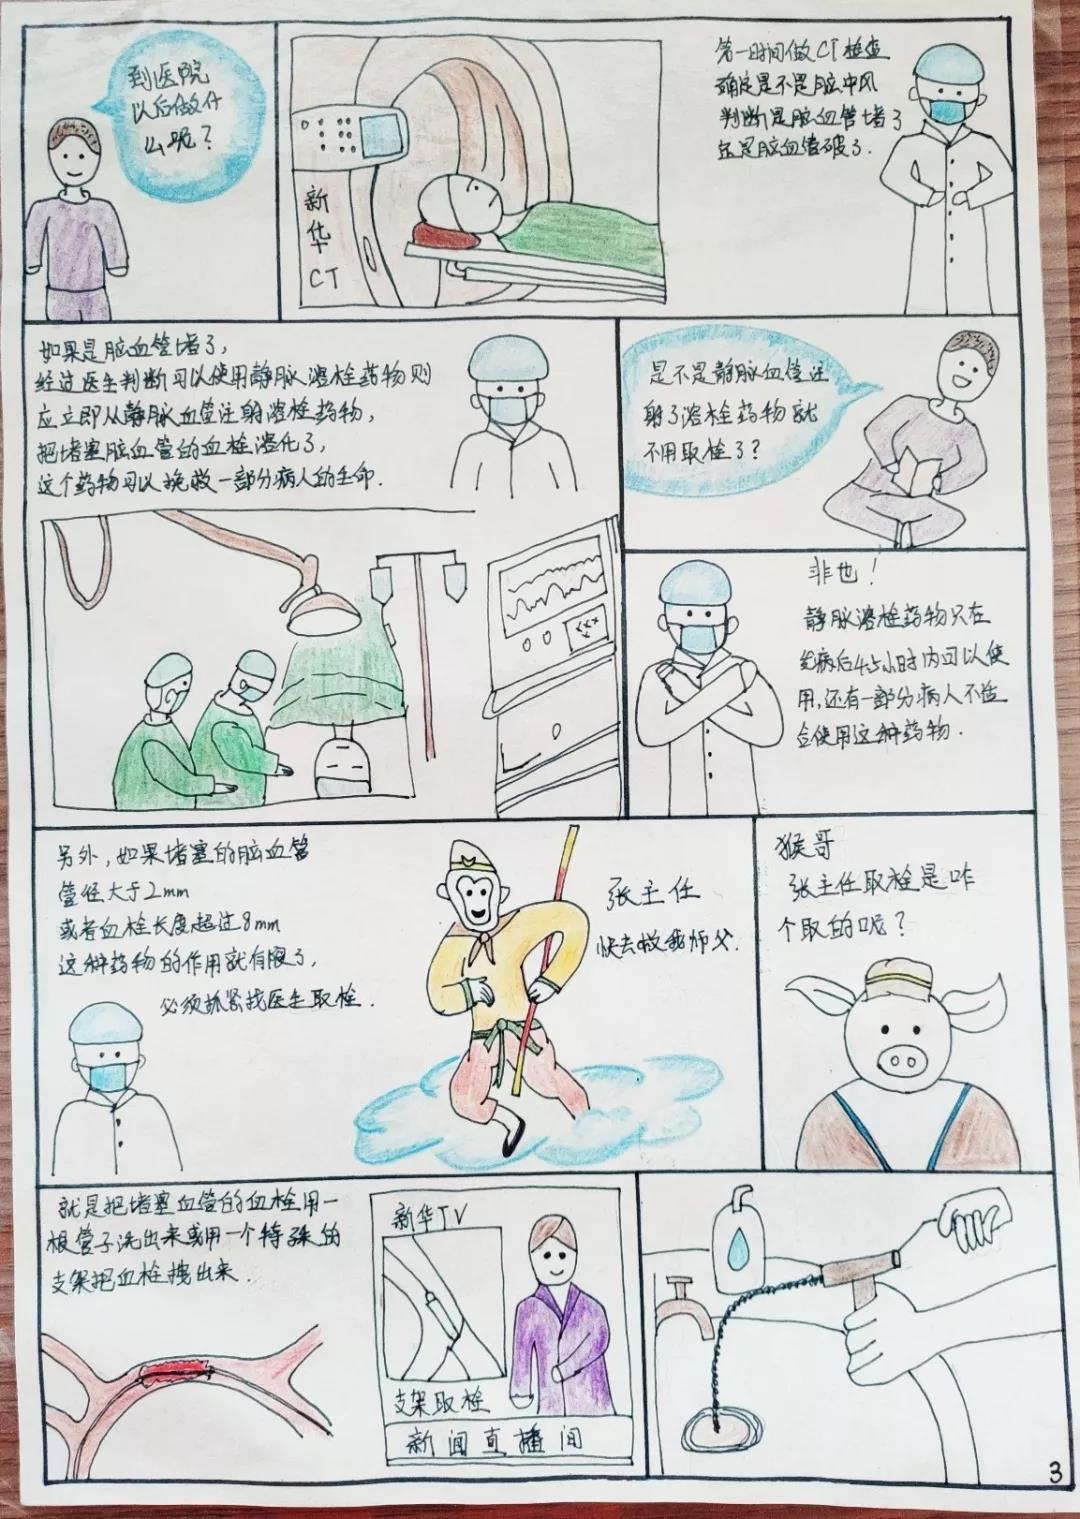 到医院
以后做什
么呢？
新
华
CT
第一时间做CT检查
确定是不是脑中风
判断是脑血管堵了
还是脑血管破了.
如果是脑血管堵了，
经过医生判断可以使用静脉溶栓药物则
应立即从静脉血管注射溶栓药物，
把堵塞脑血管的血栓溶化了，
这个药物可以挽救一部分病人的生命.
是不是静脉血管注
射了溶栓药物就
不用取栓了？
非也！
静脉溶栓药物只在
发病后4.5小时内可以使
用,还有一部分病人不适
合使用这种药物.
另外，如果堵塞的脑血管
管径大于2mm
或者血栓长度超过8mm
这种药物的作用就有限了，
必须抓紧找医生取栓.
张主任
快去救我师父.
猴哥
张主任取栓是咋
个取的呢？
就是把堵塞血管的血栓用一
根管子洗出来或用一个特殊的
支架把血栓拽出来.
新华TV
支架取栓
新闻直播间
3